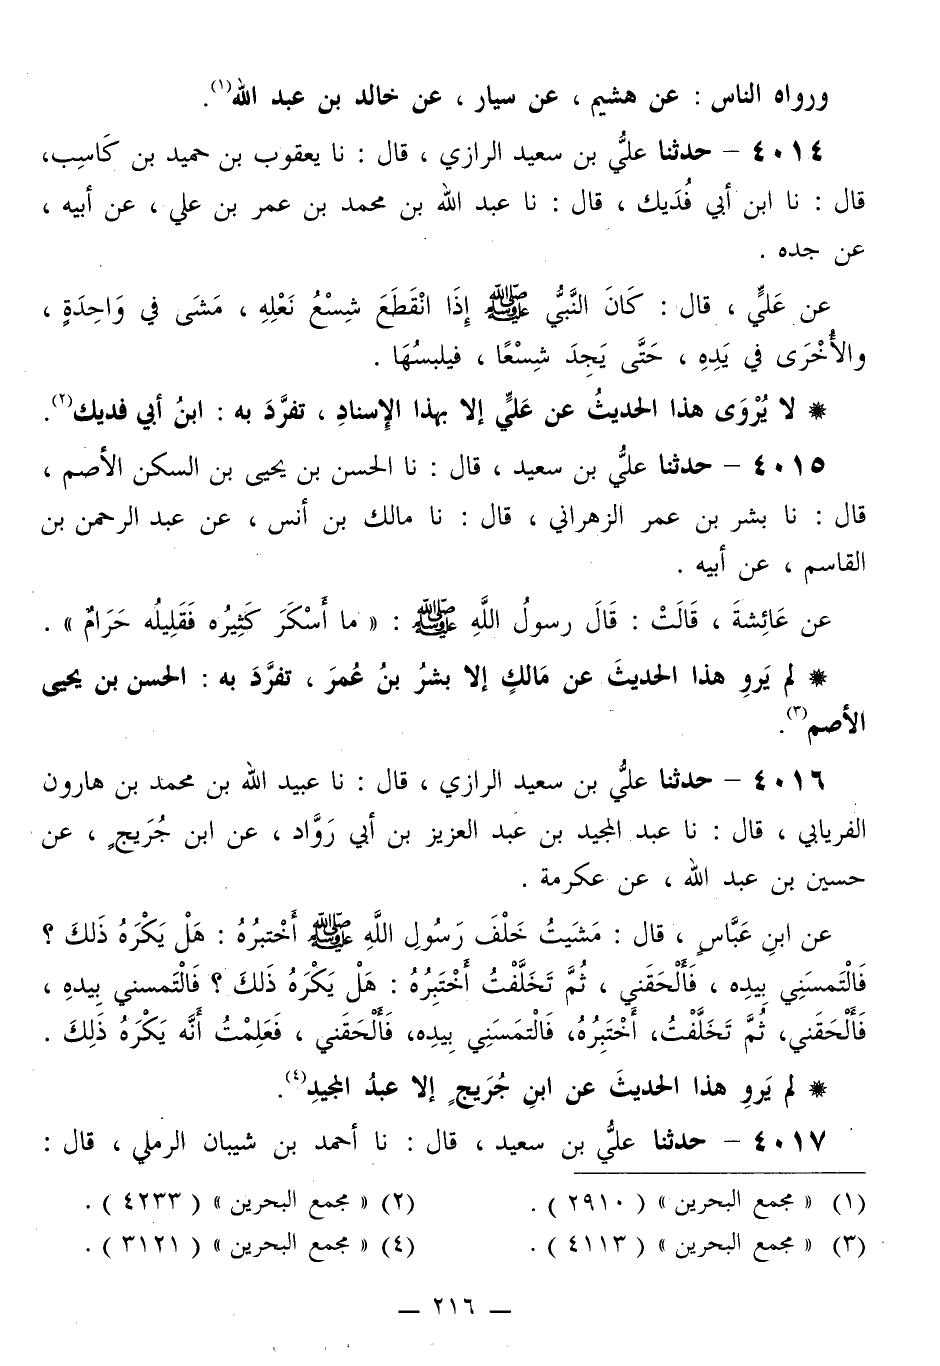 ورواه الناس : عن هشيم ، عن سيار ، عن خالد بن عبد الله(١).
٤٠١٤ – حدثنا عليُّ بن سعيد الرازي ، قال : نا يعقوب بن حميد بن كَاسِب،
قال : نا ابن أبي فُدَيك ، قال : نا عبد الله بن محمد بن عمر بن علي ، عن أبيه ،
عن جده .
عن عَليٍّ ، قال : كَانَ النَّبيُّ ﷺ إِذَا انْقَطَعَ شِسْعُ نَعْلِهِ ، مَشَى في وَاحِدَةٍ ،
والأُخْرَى في يَدِهِ ، حَتَّى يَجِدَ شِسْعًا ، فيلبسُهَا .
* لا يُرْوَى هذا الحديثُ عن عَليٍّ إلا بهذا الإِسنادِ ، تفرَّدَ به : ابنُ أبي فديك(٢).
٤٠١٥ – حدثنا عليُّ بن سعيد ، قال : نا الحسن بن يحيى بن السكن الأصم ،
قال : نا بشر بن عمر الزهراني ، قال : نا مالك بن أنس ، عن عبد الرحمن بن
القاسم ، عن أبيه .
عن عَائِشةَ ، قَالَتْ : قَالَ رسولُ اللَّهِ ﷺ : « ما أَسْكَرَ كَثِيرُه فَقَلِيلُه حَرَامٌ » .
* لم يَروِ هذا الحديثَ عن مَالكٍ إلا بشرُ بنُ عُمرَ ، تفرَّدَ به : الحسن بن يحيى
الأصم(٣).
٤٠١٦ – حدثنا عليُّ بن سعيد الرازي ، قال : نا عبيد الله بن محمد بن هارون
الفريابي ، قال : نا عبد المجيد بن عبد العزيز بن أبي رَوَّاد ، عن ابن جُرَيجٍ ، عن
حسين بن عبد الله ، عن عكرمة .
عن ابنِ عَبَّاسٍ ، قال : مَشَيتُ خَلْفَ رَسُولِ اللَّهِ ﷺ أَختبرُهُ : هَلْ يَكْرَهُ ذَلكَ ؟
فَالْتَمسَنِي بِيدِه ، فَأَلْحَقَني ، ثُمَّ تَخَلَّفْتُ أَخْتَبِرُهُ : هَلْ يَكْرَهُ ذَلكَ ؟ فَالْتَمسني بِيدهِ ،
فَأَلْحَقَني، ثُمَّ تَخَلَّفْتُ، أَخْتَبِرُهُ، فَالْتمَسَنِي بِيدهِ، فَأَلْحَقَني ، فَعَلِمْتُ أَنَّه يَكْرَهُ ذَلِكَ .
* لم يَروِ هذا الحديثَ عن ابنِ جُرَيجٍ إلا عبدُ المجيدِ(٤).
٤٠١٧ – حدثنا عليُّ بن سعيد ، قال : نا أحمد بن شيبان الرملي ، قال :
(١) « مجمع البحرين » ( ٢٩١٠ ) . (٢) « مجمع البحرين » ( ٤٢٣٣ ) .
(٣) « مجمع البحرين » ( ٤١١٣ ) . (٤) « مجمع البحرين » ( ٣١٢١ ) .
— ٢١٦ —